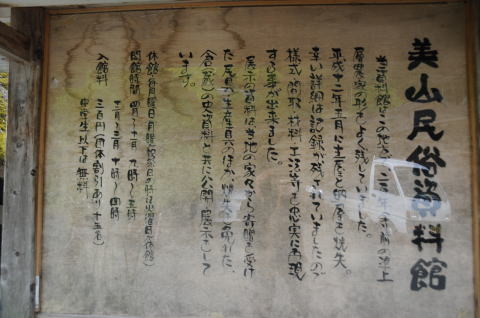 美山民俗資料館
当資料館はこの地方の二三〇年寸前の準上
層農家の形をよく残していましたが
平成十二年五月に主屋と納屋を焼失。
幸い詳細な記録が残されていましたので
様式、間取、材料、工法などを忠実に再現
する事が出来ました。
展示の資料は当地の家々から寄贈を受け
た民具や生産具のほか、焼失を免れた、
倉(蔵)や史資料と共に公開、展示をして
います。
休館 月曜日(月曜祝祭日の時は火曜日が休館)
開館時間 四月~十一月 九時~五時
十二月~三月 十時~四時
入館料 三百円(団体割引あり十五名)
中学生以下は無料